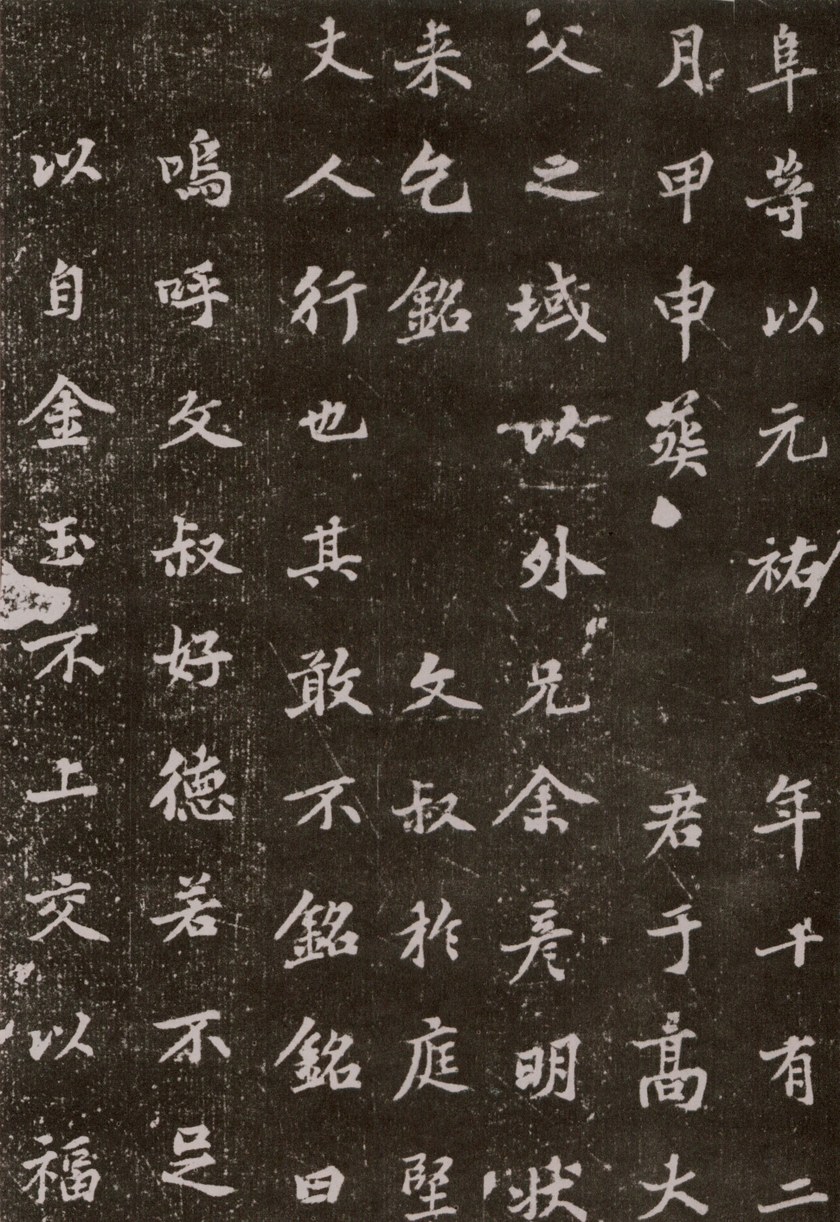 阜等以元祐二年十有二
月甲申葬　君于高大
父之域以外兄余彦明状
来乞銘　文叔於庭堅
丈人行也其敢不銘銘曰
嗚呼文叔好德若不足
以自金玉不上交以福